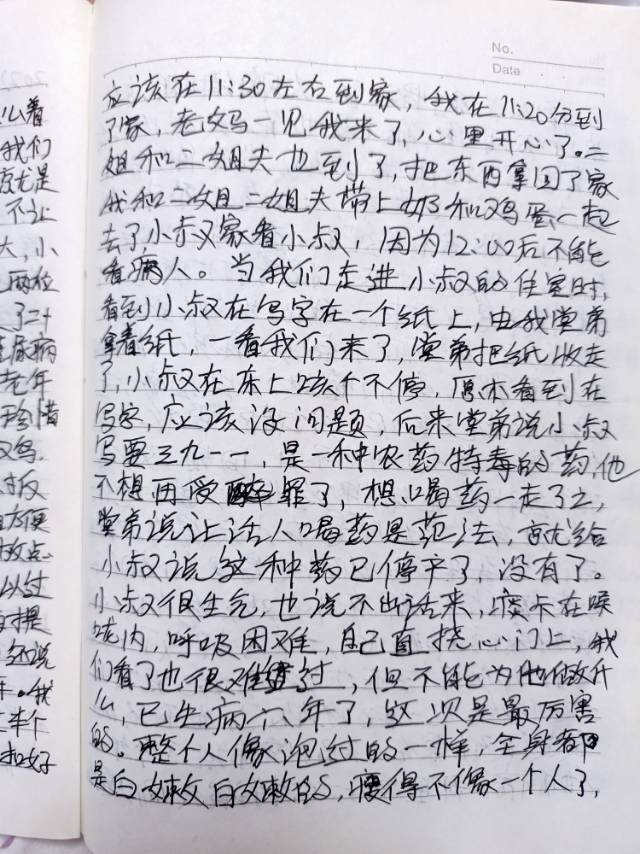 No.
Date
应该在11:30左右到家，我在11:20分到
了家，老妈一见我来了，心里开心了。二
姐和二姐夫也到了，把东西拿回了家
我和二姐二姐夫带上奶和鸡蛋一起
去了小叔家看小叔，因为12:00后不能
看病人。当我们走进小叔的住室时，
看到小叔在写字在一个纸上，由我堂弟
拿着纸，一看我们来了，堂弟把纸收走
了，小叔在床上咳个不停，原本看到在
写字，应该没问题，后来堂弟说小叔
写要三九一一，是一种农药特毒的药，他
不想再受罪了，想喝药一走了之，
堂弟说让活人喝药是犯法，就给
小叔说这种药已停产了，没有了。
小叔很生气，也说不出话来，痰卡在喉
咙内，呼吸困难，自己直挠心门上，我
们看了也很难过，但不能为他做什
么，已生病六年了，这次是最厉害
的。整个人像泡过的一样，全身都
是白嫩白嫩的，瘦得不像一个人了，
么着
我们
就是
不让
大，小
两位
了二十
尿病
老年
珍惜
鸡
反
方便
放点
以过
提
还说
。我
半个
和好